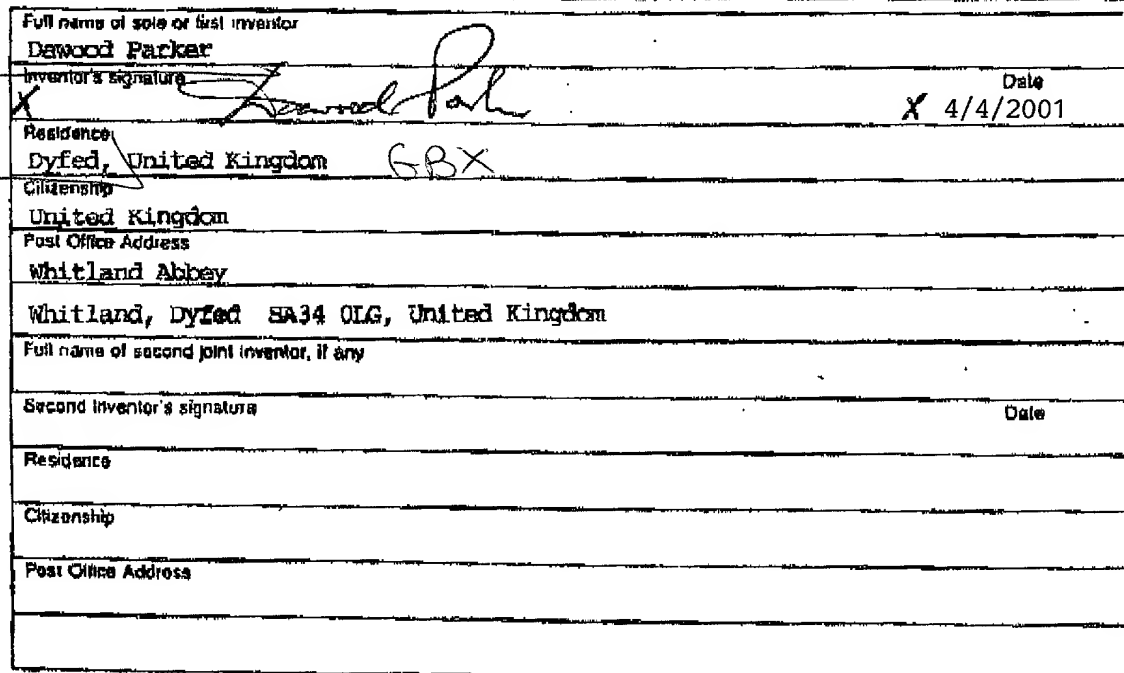 Full name of sole or first inventor
Dawood Parker
Inventor's signature Date
X Dawood Parker X 4/4/2001
Residence
Dyfed, United Kingdom GBX
Citizenship
United Kingdom
Post Office Address
Whitland Abbey
Whitland, Dyfed SA34 0LG, United Kingdom
Full name of second joint inventor, if any
Second inventor's signature Date
Residence
Citizenship
Post Office Address